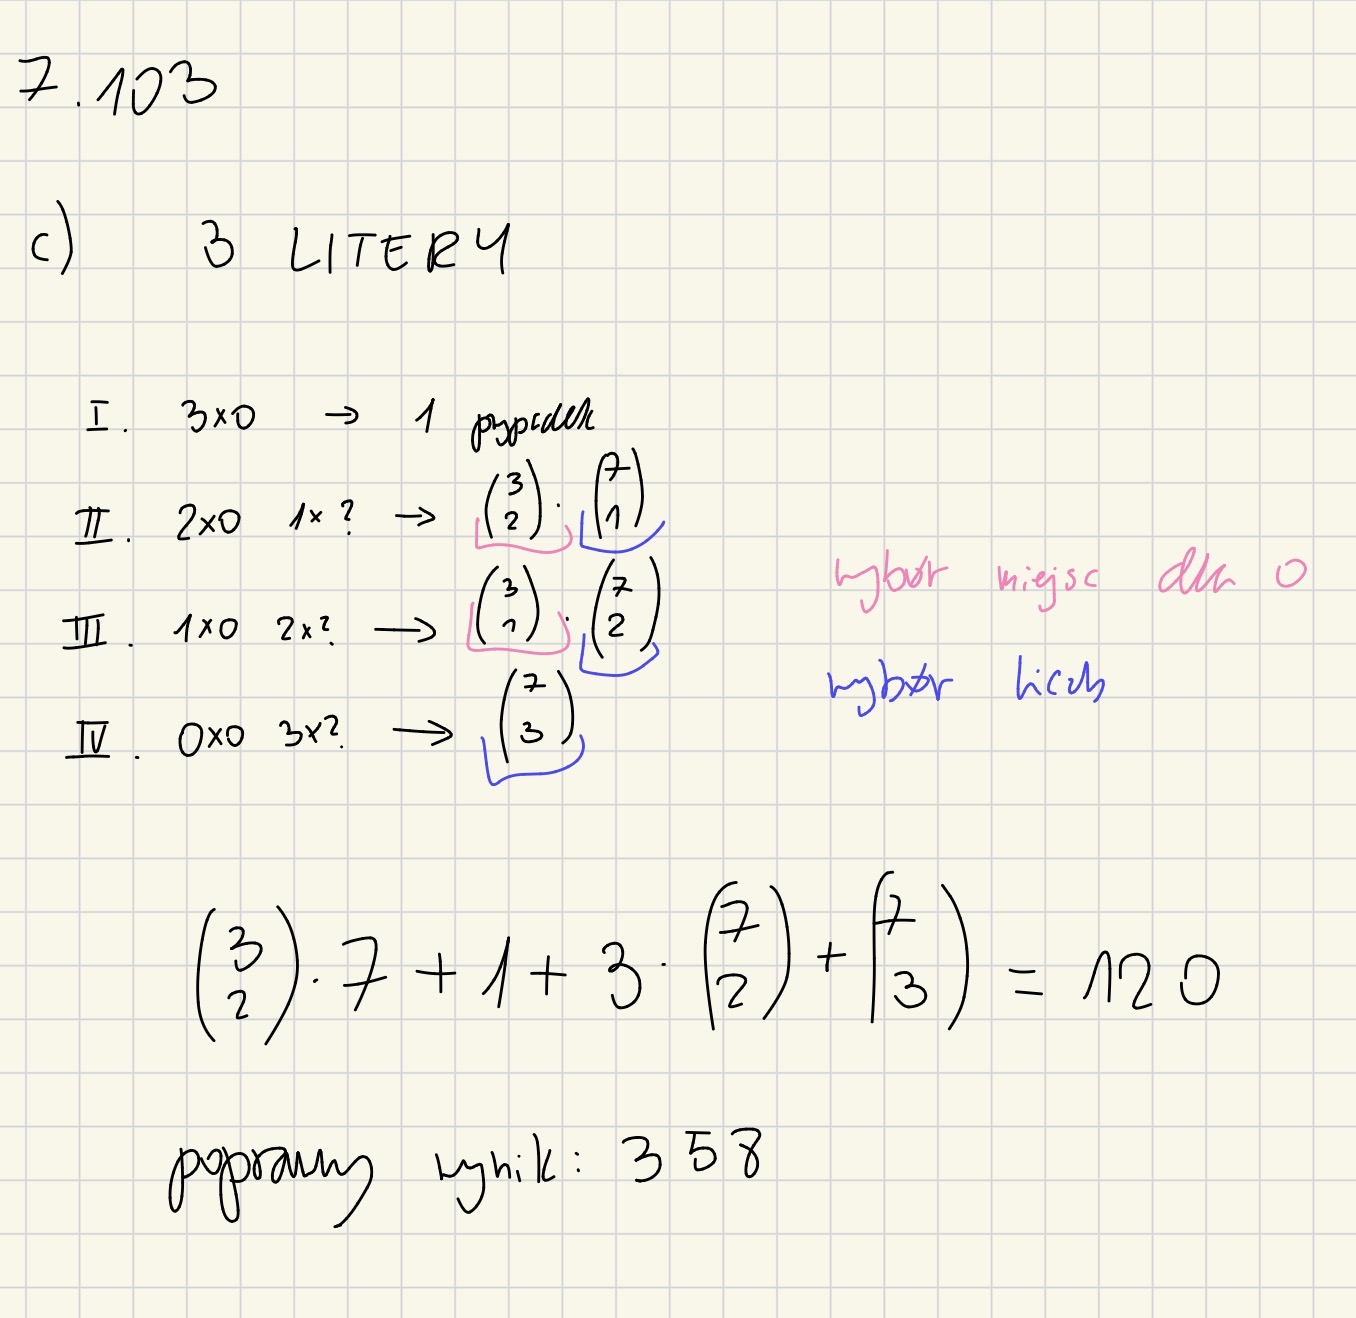 7.103
c) 3 LITERY
I. 3x0 → 1 przypadek
II. 2x0 1x? → (3 2) · (7 1)
III. 1x0 2x? → (3 1) · (7 2)
wybór miejsc dla 0
IV. 0x0 3x? → (7 3)
wybór liczb
(3 2) · 7 + 1 + 3 · (7 2) + (7 3) = 120
poprawny wynik: 358